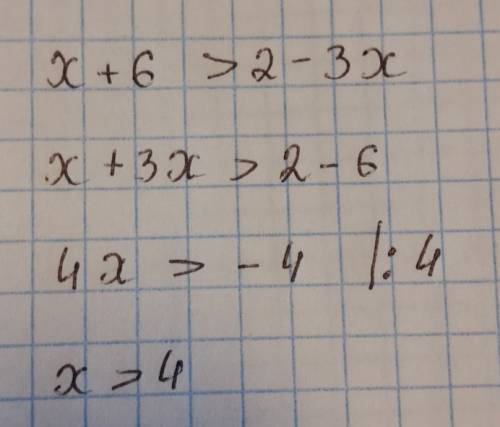 x + 6 > 2 - 3x
x + 3x > 2 - 6
4x > - 4 /: 4
x > 4